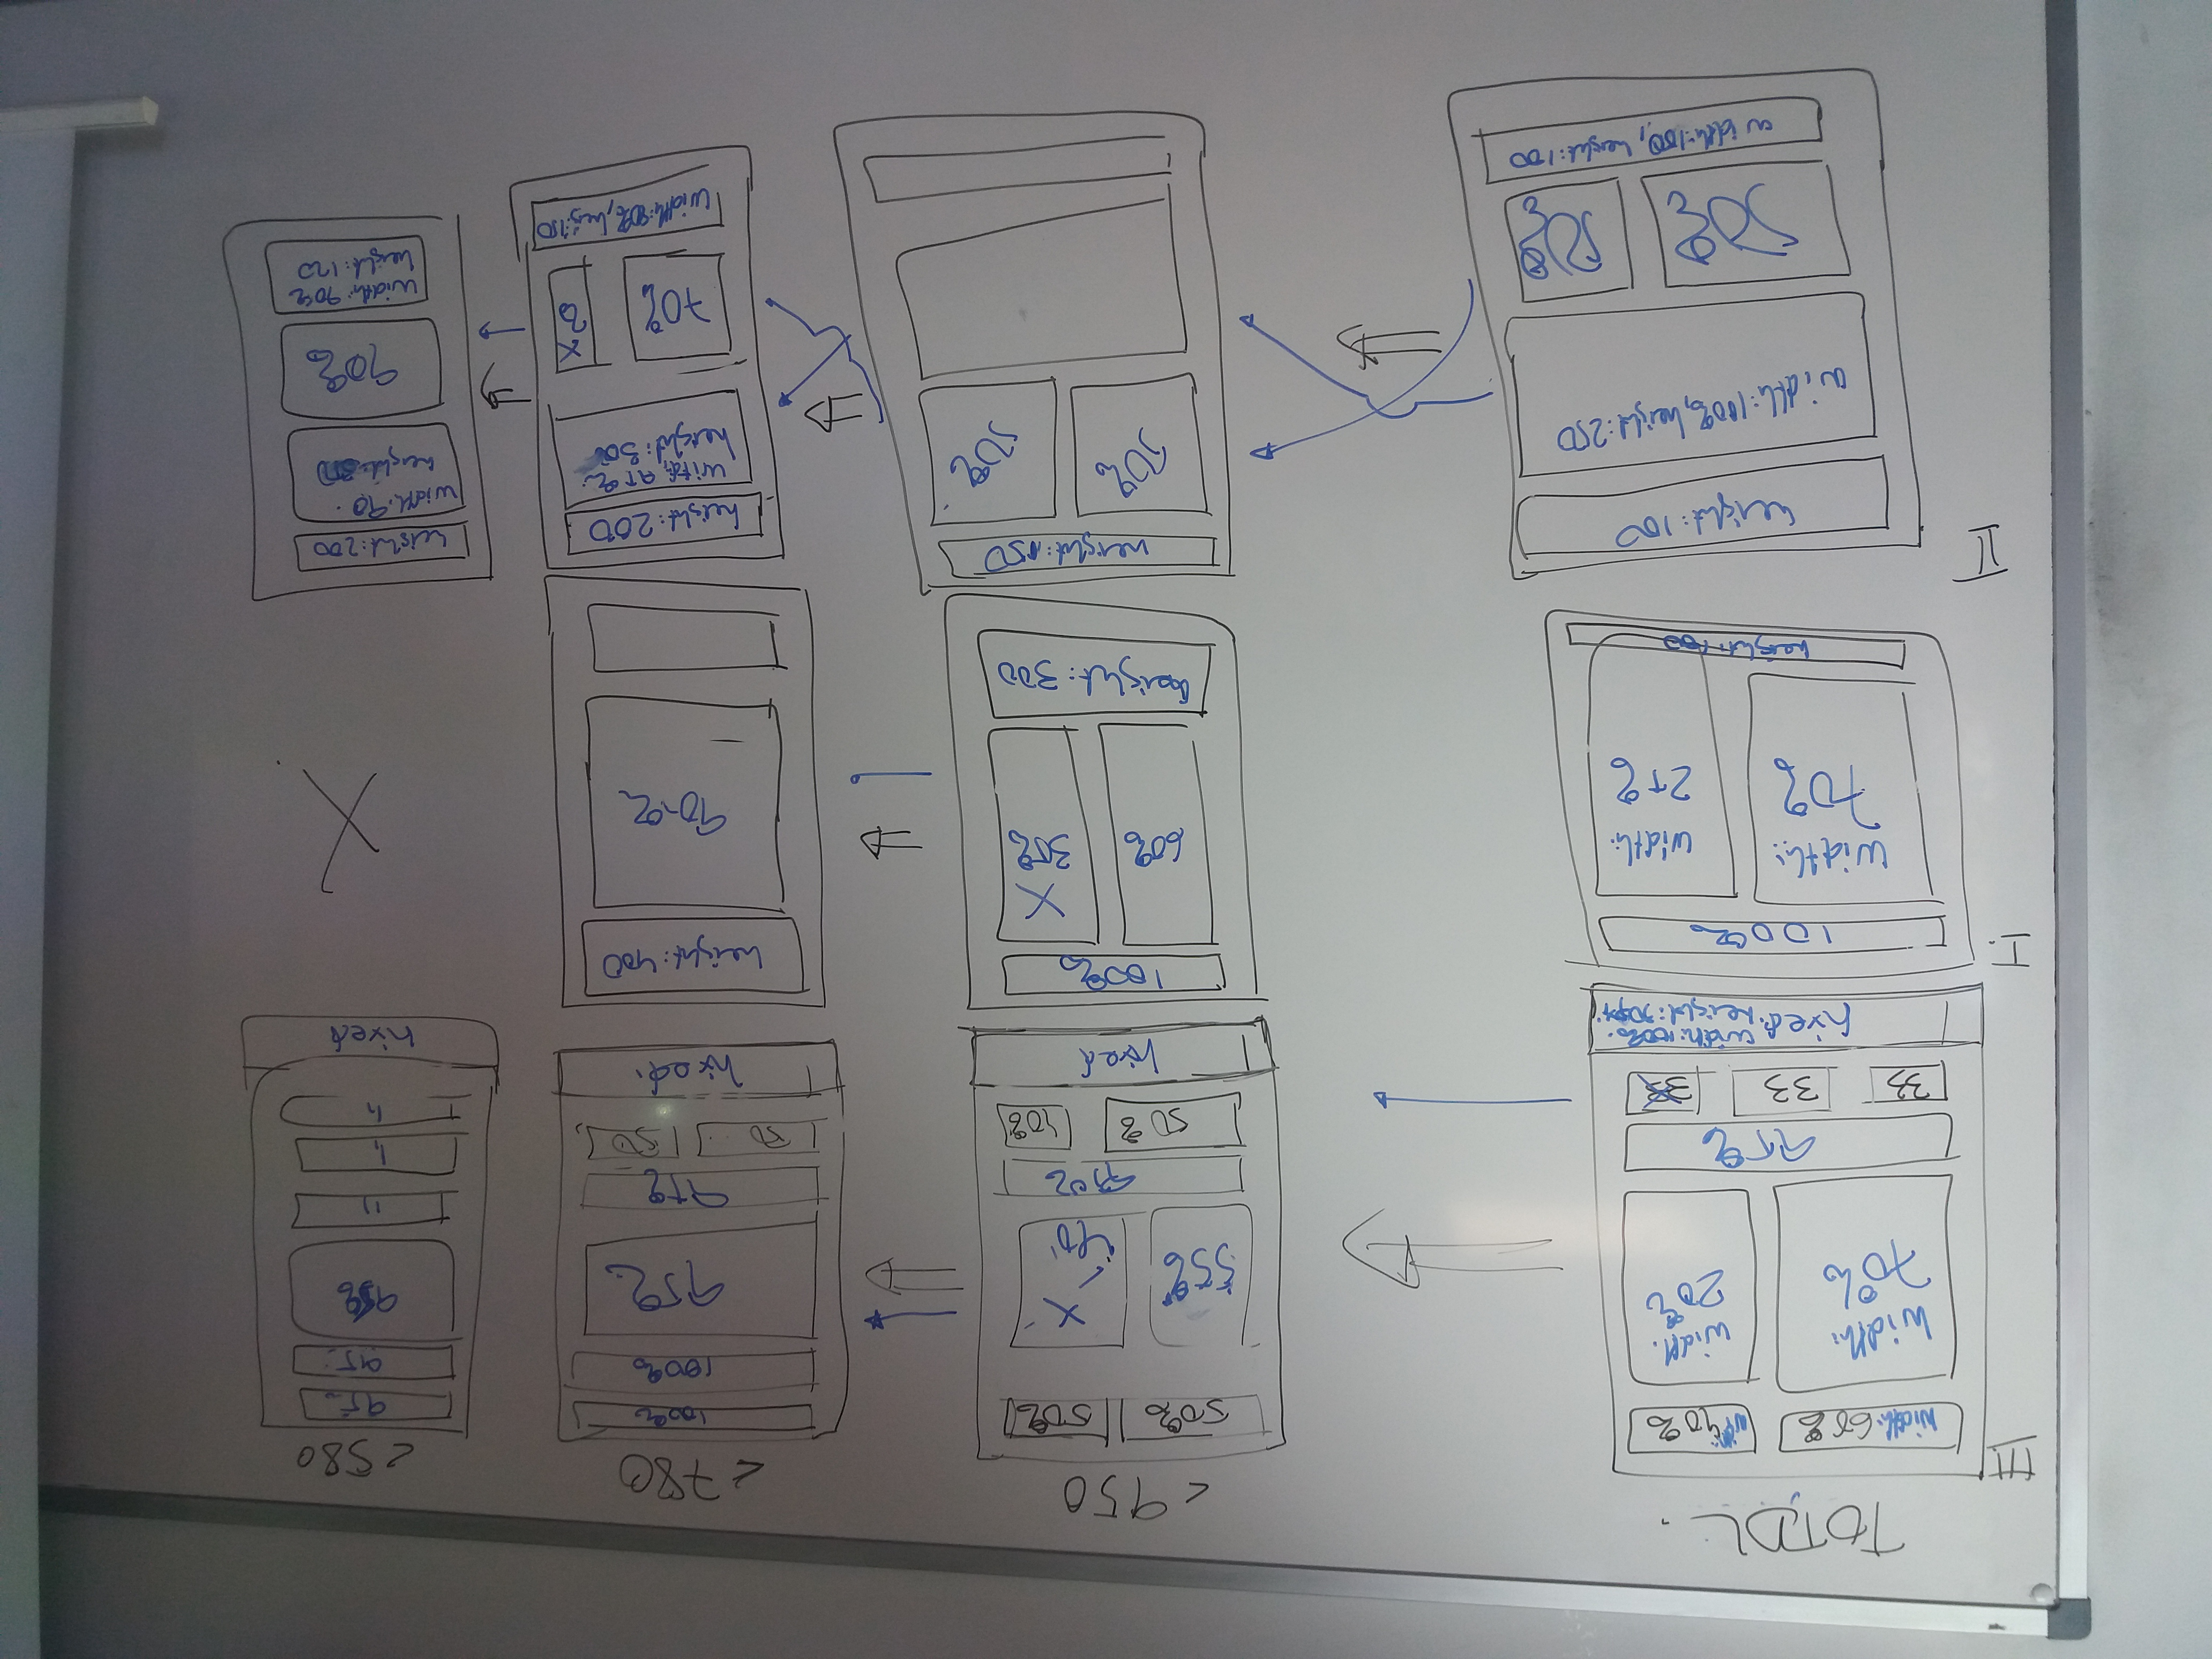 TOTDL.
<950
<780
<580
III.
width: 60%
40%
width:
70%
width.
20%
95%
33
33
33
fixed.
width:100%.
50%
50%
55%
X
40
50%
40%
fixed
100%
100%
95%
95%
50
50
fixed.
95
95
95%
11
fixed
I.
100%
width:
70%
width:
25%
height: 100
100%
60%
X
35%
height: 300
height: 400
90%
X
II
height: 100
width:100%, height:250
50%
50%
width:100, height:100
height: 150
50%
50%
height: 200
height: 300
70%
X
width:80%, heig:150
height: 200
width: 90
90%
width: 90%
height: 120